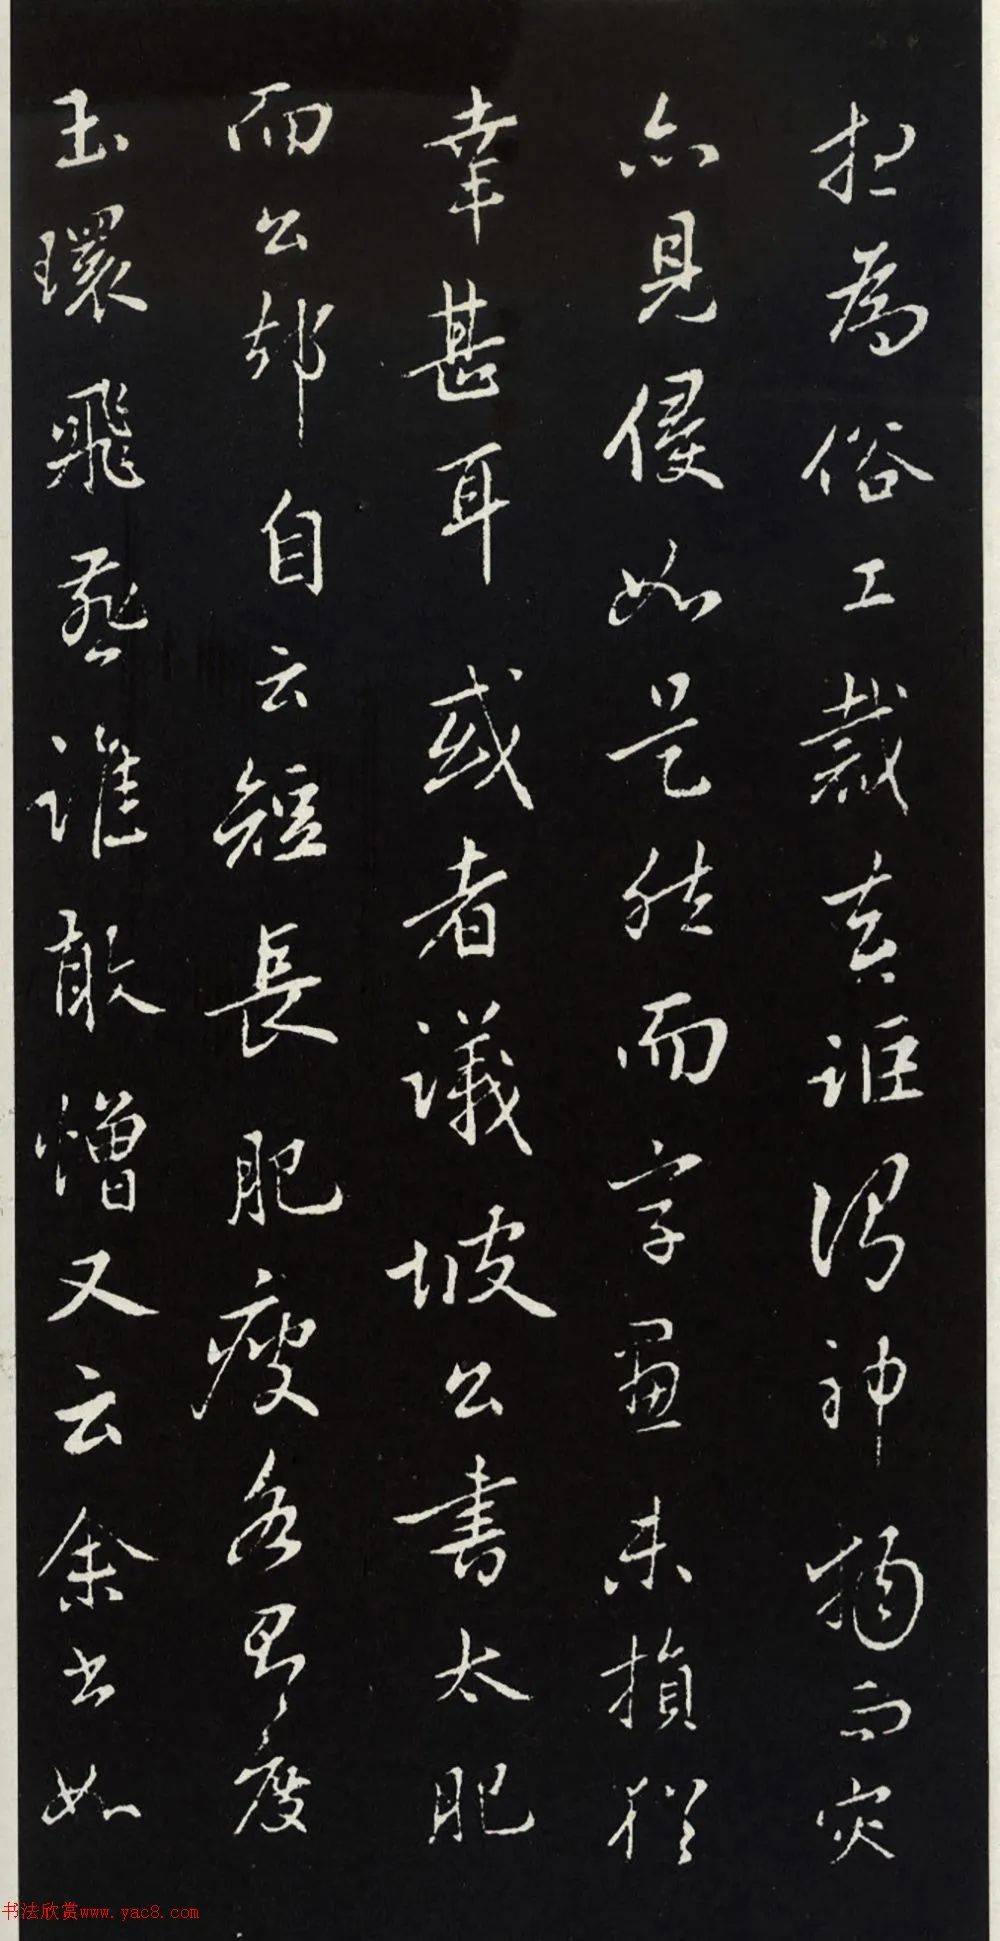 想為俗工裁去誰謂神物而灾
亦見侵如是然而字畫未損猶
幸甚耳或者議坡公書太肥
而公却自云短長肥瘦各有度
玉環飛燕誰敢憎又云余書如
书法欣赏www.yac8.com